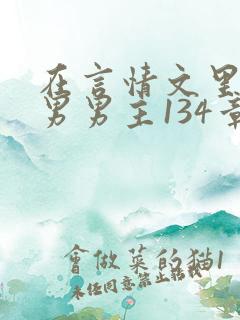 在言情文里
男男主134章
會做菜的猫1
未任同意禁止转载